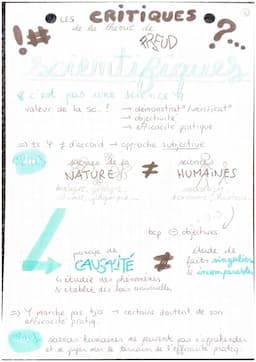 LES CRITIQUES
de la théorie de
FREUD
!# ?...
scientifiques
c'est pas une science
valeur de la sc. ! → démonstrat°/vérificat°
→ objectivité
→ efficacité pratique
⇒ ts ψ ≠ d'accord → approche subjective
sciences de la sciences
NATURE ≠ HUMAINES
biologie,
chimie, physique...
bcp ⊖ objectives
CAUSALITÉ ≠ étude de
faits singuliers
& incomparables
↳ étudie des phénomènes
& établit des lois
⇒ ψ marche pas tjs → certains doutent de son
efficacité pratiq.
sciences humaines ne peuvent pas s'appréhender
et se juger sur le terrain de l'efficacité pratiq.